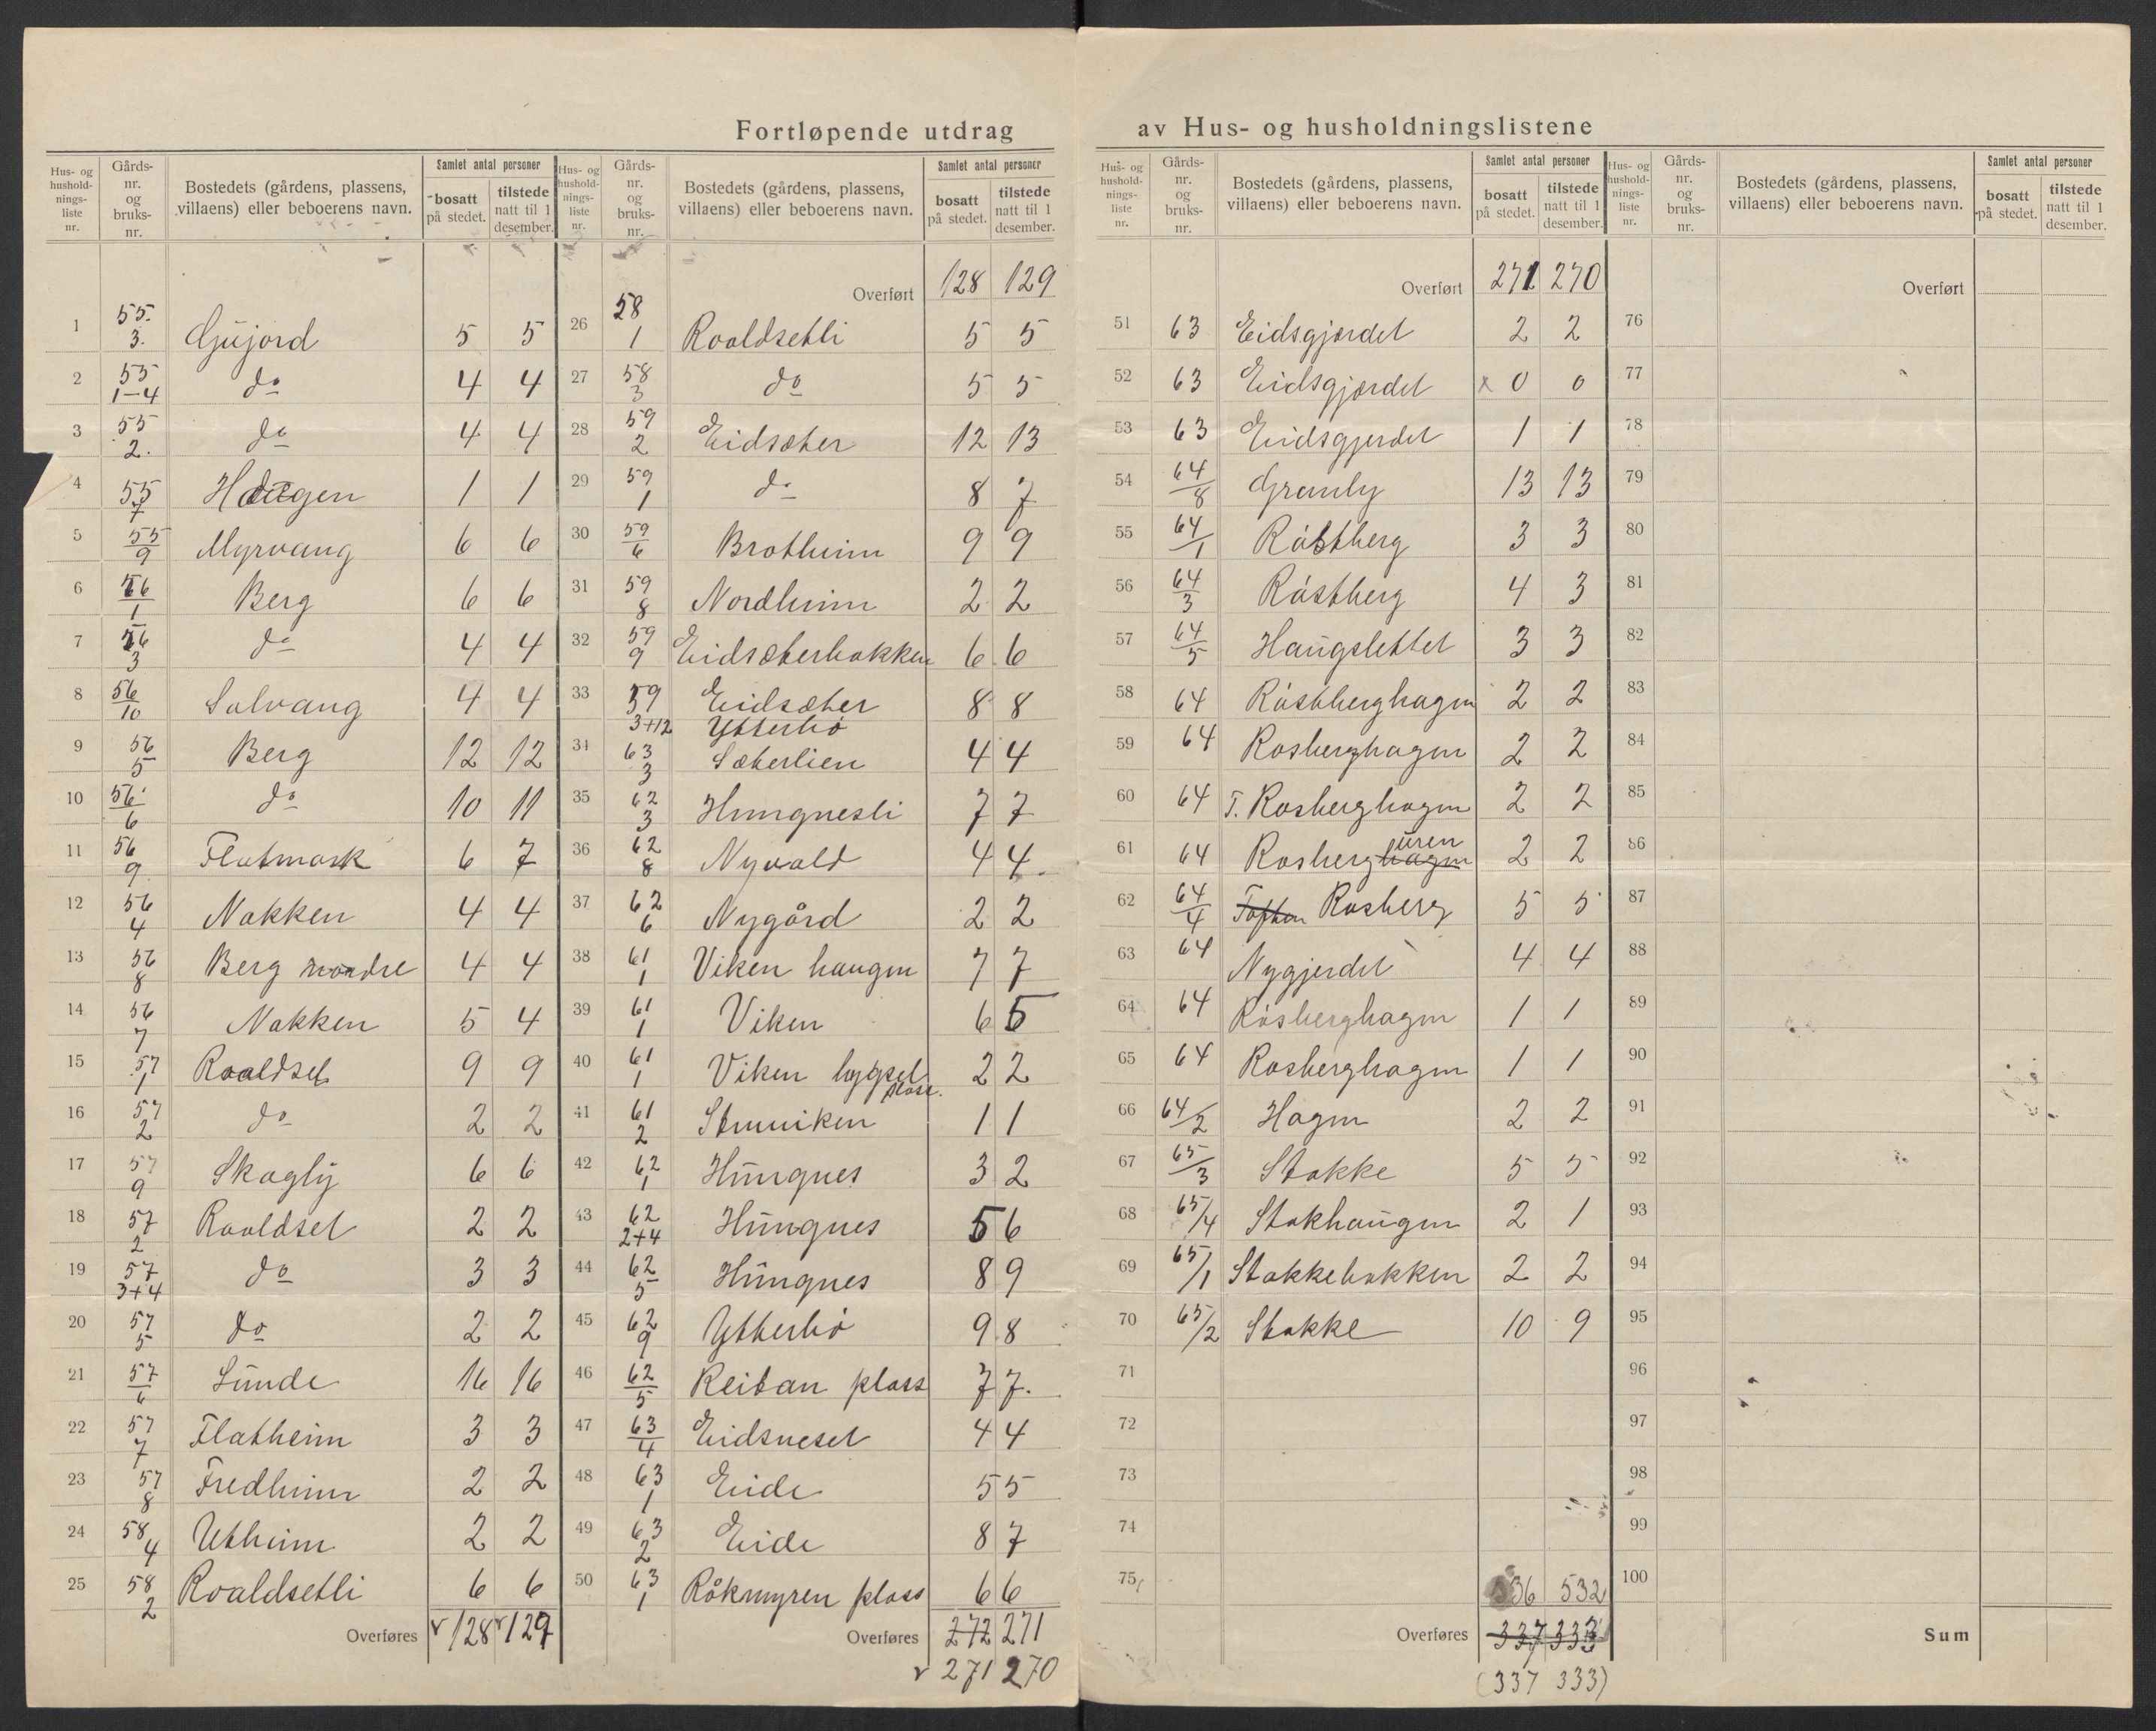 Fortløpende utdrag av Hus- og husholdningslistene
Hus- og husholdnings-liste nr. | Gårds-nr. og bruks-nr. | Bostedets (gårdens, plassens, villaens) eller beboerens navn. | Samlet antal personer bosatt på stedet. | tilstede natt til 1 desember.
1 55/3. Gujord 5 5
2 55/1-4 do 4 4
3 55/2. do 4 4
4 55/7 Haugen 1 1
5 55/9 Myrvang 6 6
6 56/1 Berg 6 6
7 56/3 do 4 4
8 56/10 Solvang 4 4
9 56/5 Berg 12 12
10 56/6 do 10 11
11 56/9 Flatmark 6 7
12 56/4 Nakken 4 4
13 56/8 Berg nordre 4 4
14 56/7 Nakken 5 4
15 57/1 Roaldset 9 9
16 57/2 do 2 2
17 57/9 Skogly 6 6
18 57/2 Roaldset 2 2
19 57/3+4 do 3 3
20 57/5 do 2 2
21 57/6 Sunde 16 16
22 57/7 Flatheim 3 3
23 57/8 Fredheim 2 2
24 58/4 Utheim 2 2
25 58/2 Roaldsetli 6 6
Overføres 128 129
Hus- og husholdnings-liste nr. | Gårds-nr. og bruks-nr. | Bostedets (gårdens, plassens, villaens) eller beboerens navn. | Samlet antal personer bosatt på stedet. | tilstede natt til 1 desember.
Overført 128 129
26 58/1 Roaldsetli 5 5
27 58/3 do 5 5
28 59/2 Eidsæter 12 13
29 59/1 do 8 7
30 59/6 Brotheim 9 9
31 59/8 Nordheim 2 2
32 59/9 Eidsæterbakken 6 6
33 59/3+12 Eidsæter Ytterbø 8 8
34 63/3 Sæterlien 4 4
35 62/3 Hungnesli 7 7
36 62/8 Nyvold 4 4.
37 62/6 Nygård 2 2
38 61/1 Viken haugen 7 7
39 61/1 Viken 6 5
40 61/1 Viken bygsel plass. 2 2
41 61/2 Stenviken 1 1
42 62/1 Hungnes 3 2
43 62/2+4 Hungnes 5 6
44 62/5 Hungnes 8 9
45 62/9 Ytterbø 9 8
46 62/5 Reitan plass 7 7.
47 63/4 Eidsneset 4 4
48 63/1 Eide 5 5
49 63/2 Eide 8 7
50 63/1 Råkmyren plass 6 6
Overføres 272 271
271 270
Hus- og husholdnings-liste nr. | Gårds-nr. og bruks-nr. | Bostedets (gårdens, plassens, villaens) eller beboerens navn. | Samlet antal personer bosatt på stedet. | tilstede natt til 1 desember.
Overført 271 270
51 63 Eidsgjerdet 2 2
52 63 Eidsgjerdet x 0 0
53 63 Eidsgjerdet 1 1
54 64/8 Granly 13 13
55 64/1 Råstberg 3 3
56 64/3 Råstberg 4 3
57 64/5 Haugslettet 3 3
58 64 Råstberghagen 2 2
59 64 Rosberghagen 2 2
60 64 T. Rosberghagen 2 2
61 64 Rosberghagen uren 2 2
62 64/4 Toften Rosberg 5 5
63 64 Nygjerdet 4 4
64 64 Råsberghagen 1 1
65 64 Rosberghagen 1 1
66 64/2 Hagen 2 2
67 65/3 Stokke 5 5
68 65/4 Stokhaugen 2 1
69 65/1 Stokkebakken 2 2
70 65/2 Stokke 10 9
71
72
73
74
75 336 532
Overføres 337 333
(337 333)
Hus- og husholdnings-liste nr. | Gårds-nr. og bruks-nr. | Bostedets (gårdens, plassens, villaens) eller beboerens navn. | Samlet antal personer bosatt på stedet. | tilstede natt til 1 desember.
Overført
76
77
78
79
80
81
82
83
84
85
86
87
88
89
90
91
92
93
94
95
96
97
98
99
100
Sum